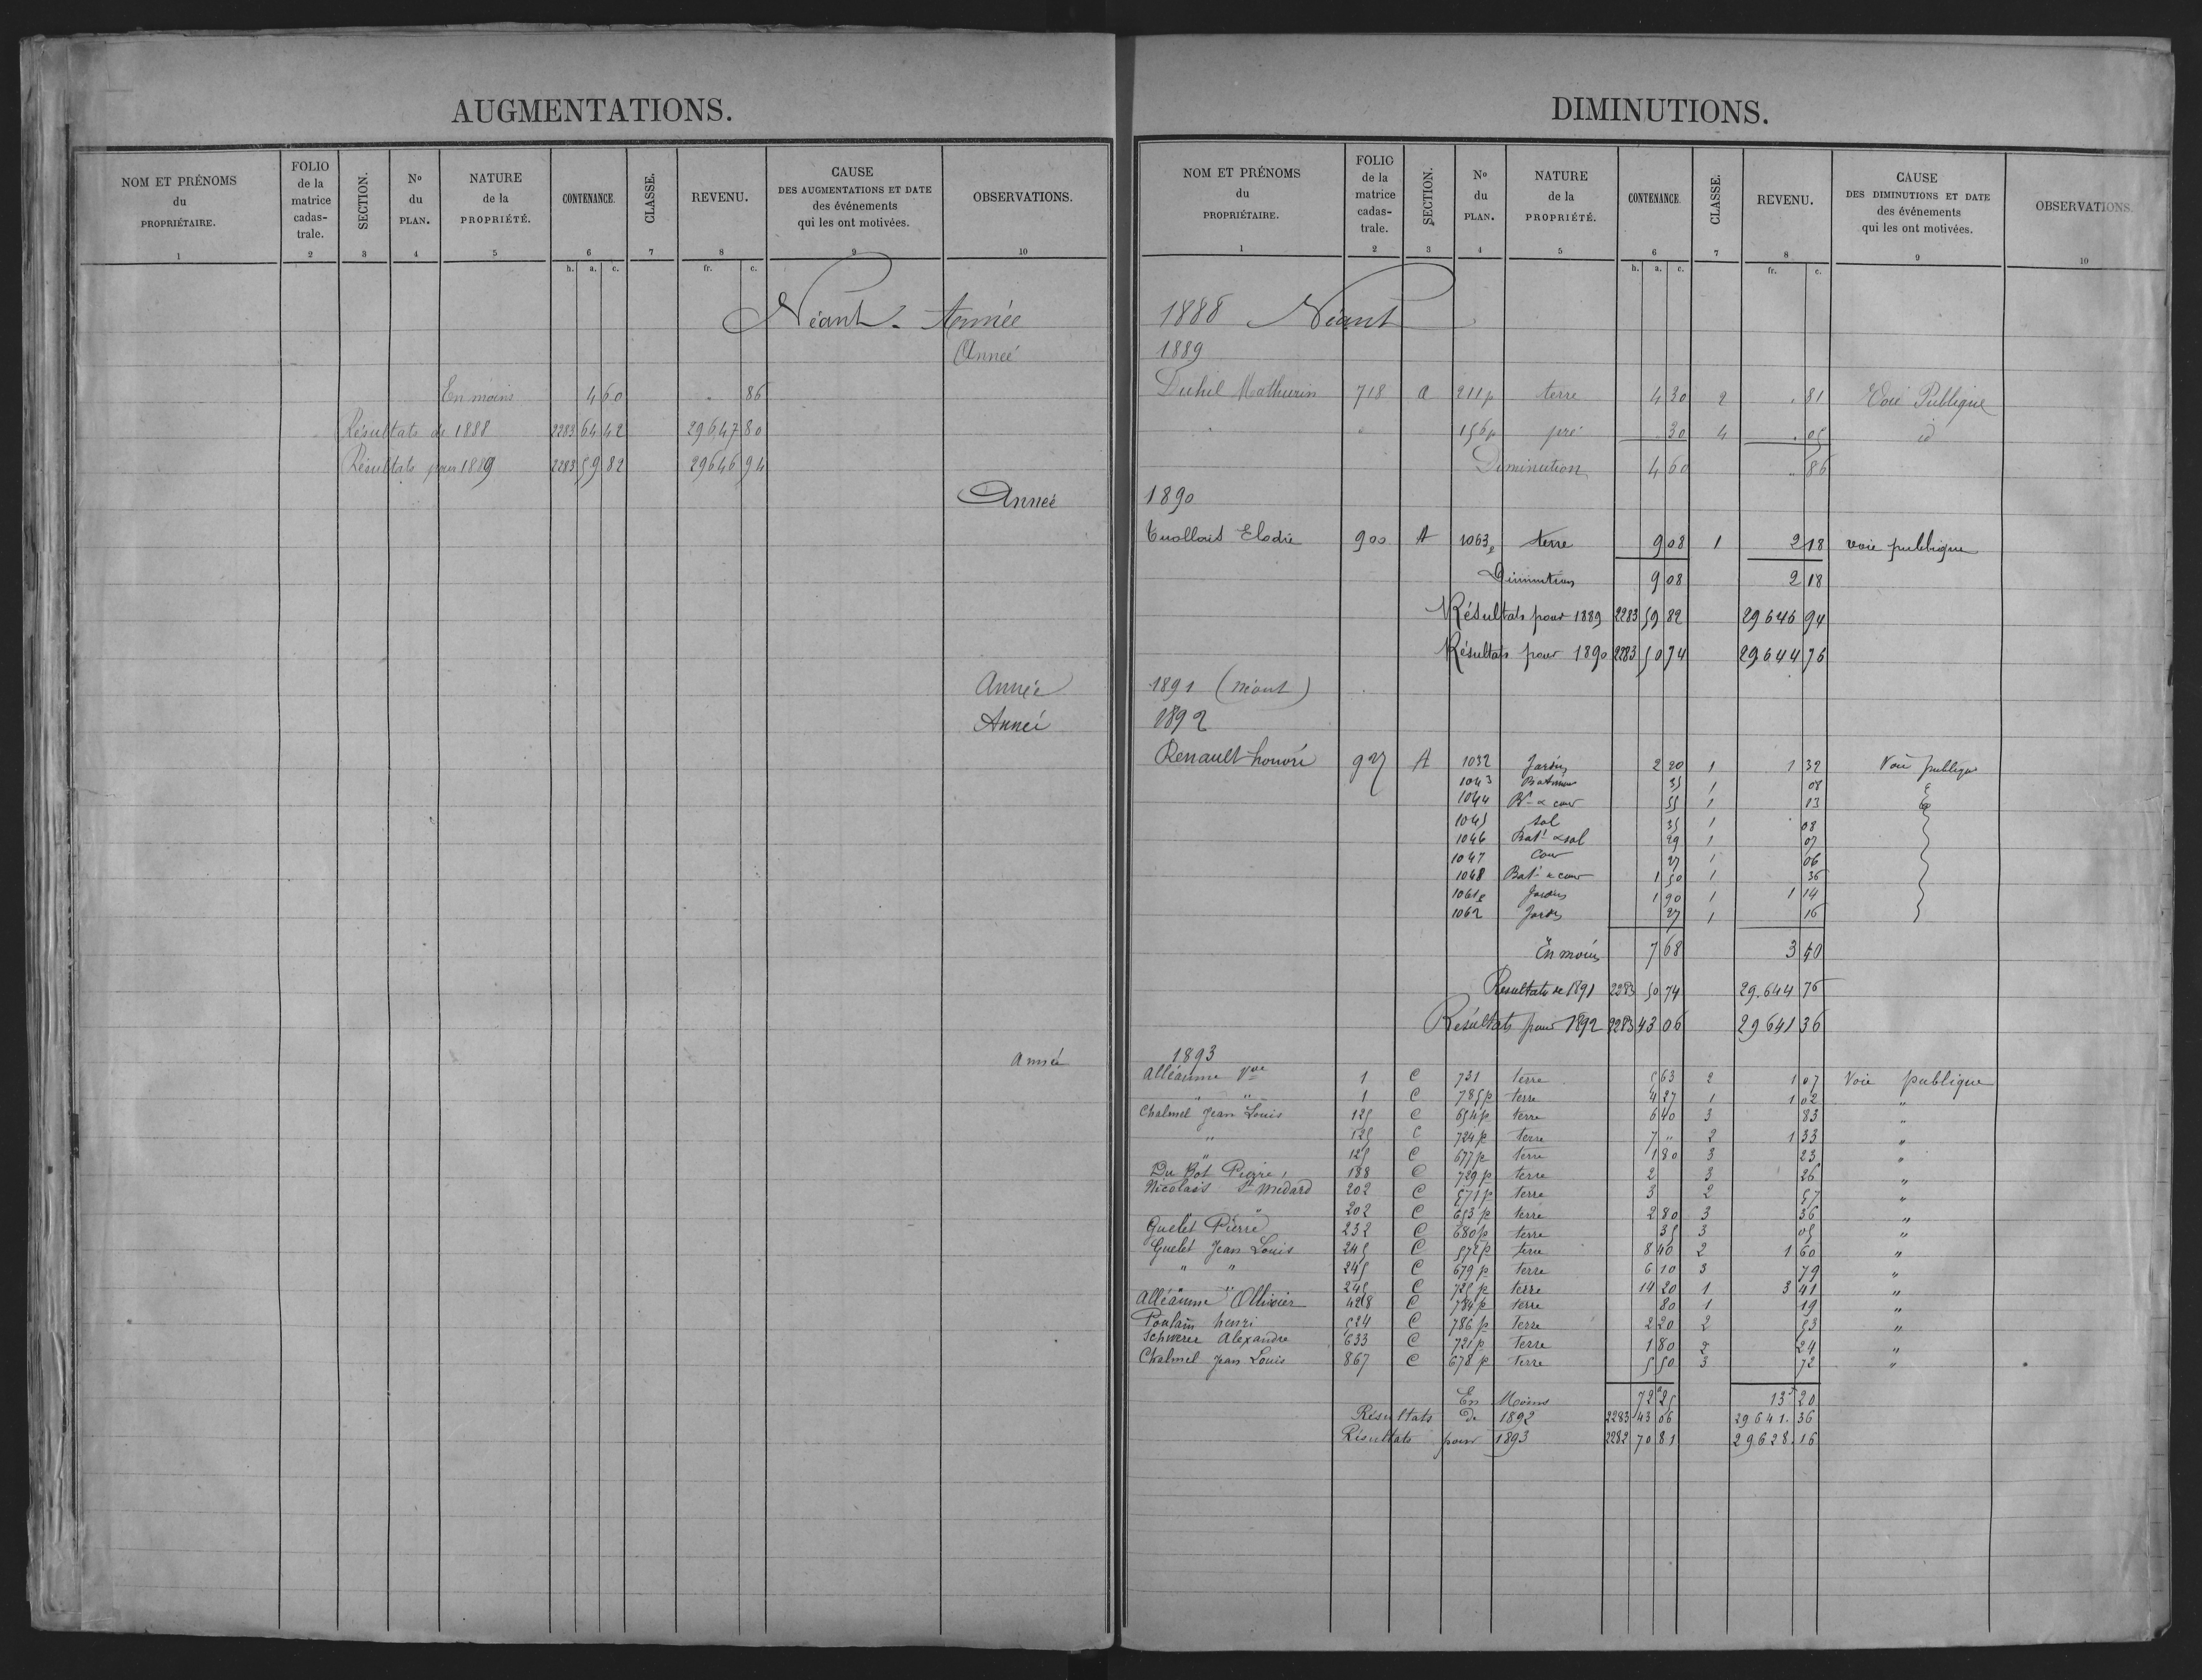 AUGMENTATIONS.
NOM ET PRÉNOMS du PROPRIÉTAIRE. FOLIO de la matrice cadas-trale. SECTION. No du PLAN. NATURE de la PROPRIÉTÉ. CONTENANCE. CLASSE. REVENU. CAUSE DES AUGMENTATIONS ET DATE des événements qui les ont motivées. OBSERVATIONS.
1 2 3 4 5 6 7 8 9 10
h. a. c. fr. c.
Néant. Année
Année
En moins 4 60 " 86
Résultats de 1888 2283 64 42 29647 80
Résultats pour 1889 2283 59 82 29646 94
Année
Année
Année
Année
DIMINUTIONS.
NOM ET PRÉNOMS du PROPRIÉTAIRE. FOLIO de la matrice cadas-trale. SECTION. No du PLAN. NATURE de la PROPRIÉTÉ. CONTENANCE. CLASSE. REVENU. CAUSE DES DIMINUTIONS ET DATE des événements qui les ont motivées. OBSERVATIONS.
1 2 3 4 5 6 7 8 9 10
h. a. c. fr. c.
1888 Néant
1889
Duhil Mathurin 718 a 211p terre 4 30 2 " 81 Voie Publique
156p pré 30 4 " 05 id
Diminution 4 60 " 86
1890
Elodie 900 A 1063p terre 9 08 1 2 18 voie publique
Diminution 9 08 2 18
Résultats pour 1889 2283 59 82 29646 94
Résultats pour 1890 2283 50 74 29644 76
1891 (néant)
1892
Renault honoré 927 A 1032 Jardin 2 20 1 1 32 Voie publique
1043 Batiment 35 1 08
1044 Bt & cour 55 1 13
1045 sol 35 1 08
1046 Bat & sol 29 1 07
1047 Cour 27 1 06
1048 Bat & cour 1 50 1 36
1061p Jardin 1 90 1 1 14
1062 Jardin 27 1 16
En moins 7 68 3 40
Resultats de 1891 2283 50 74 29.644 76
Résultats pour 1892 2283 43 06 29641 36
1893
Alléaume Vve 1 C 731 terre 5 63 2 1 07 Voie publique
" " 1 C 785p terre 4 27 1 1 02 "
Chalmel Jean Louis 125 C 654p terre 6 40 3 83 "
" 125 C 724p terre 7 " 2 1 33 "
" 125 C 677p terre 1 80 3 23 "
Du Bot Pierre 188 C 729p terre 2 3 26 "
Nicolais St Médard 202 C 571p terre 3 2 57 "
" 202 C 653p terre 2 80 3 36 "
Guelet Pierre 232 C 680p terre 35 3 05 "
Guelet Jean Louis 245 C 572p terre 8 40 2 1 60 "
" " 245 C 679p terre 6 10 3 79 "
" 245 C 725p terre 14 20 1 3 41 "
Alléaume Ollivier 428 C 784p terre 80 1 19 "
Poulain henri 524 C 786p terre 2 20 2 53 "
Schwerer Alexandre 633 C 721p terre 1 80 3 24 "
Chalmel Jean Louis 867 C 678p terre 5 50 3 72 "
En Moins 72 25 13 20
Résultats de 1892 2283 43 06 29641.36
Résultats pour 1893 2282 70 81 29.628.16